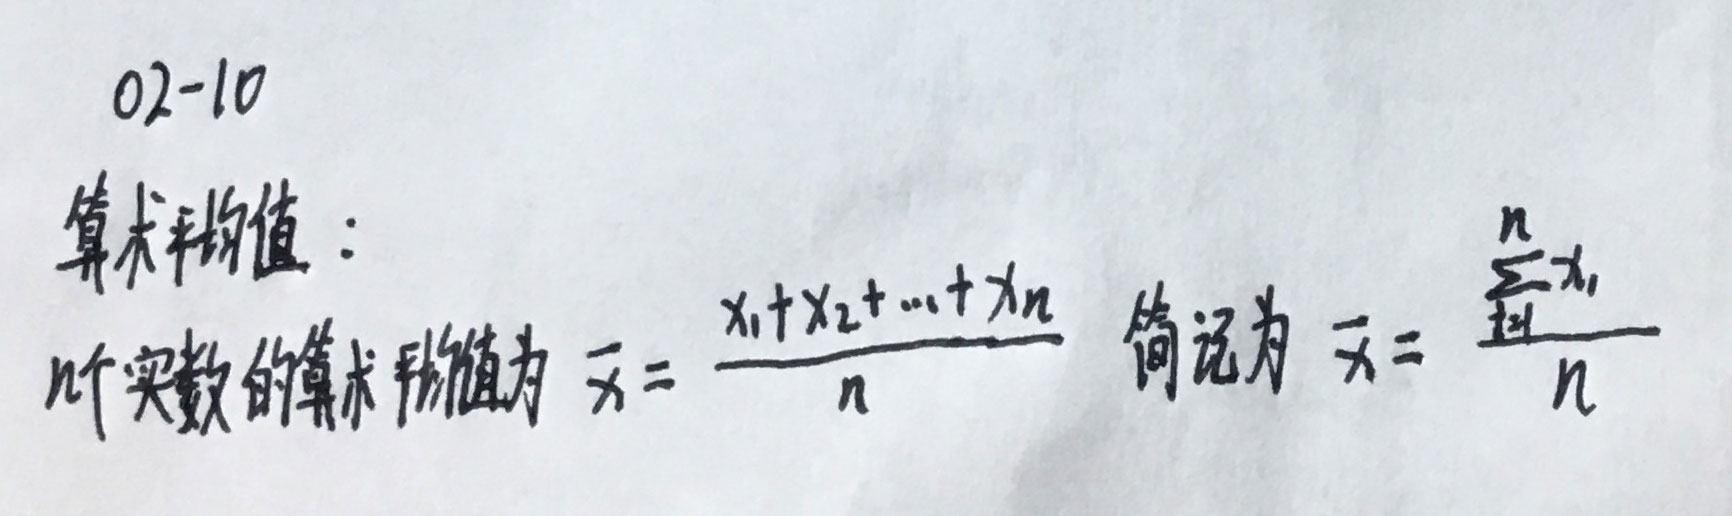 02-10
算术平均值：
n个实数的算术平均值为 $\bar{x} = \frac{x_1+x_2+\dots+x_n}{n}$ 简记为 $\bar{x} = \frac{\sum_{i=1}^{n} x_1}{n}$